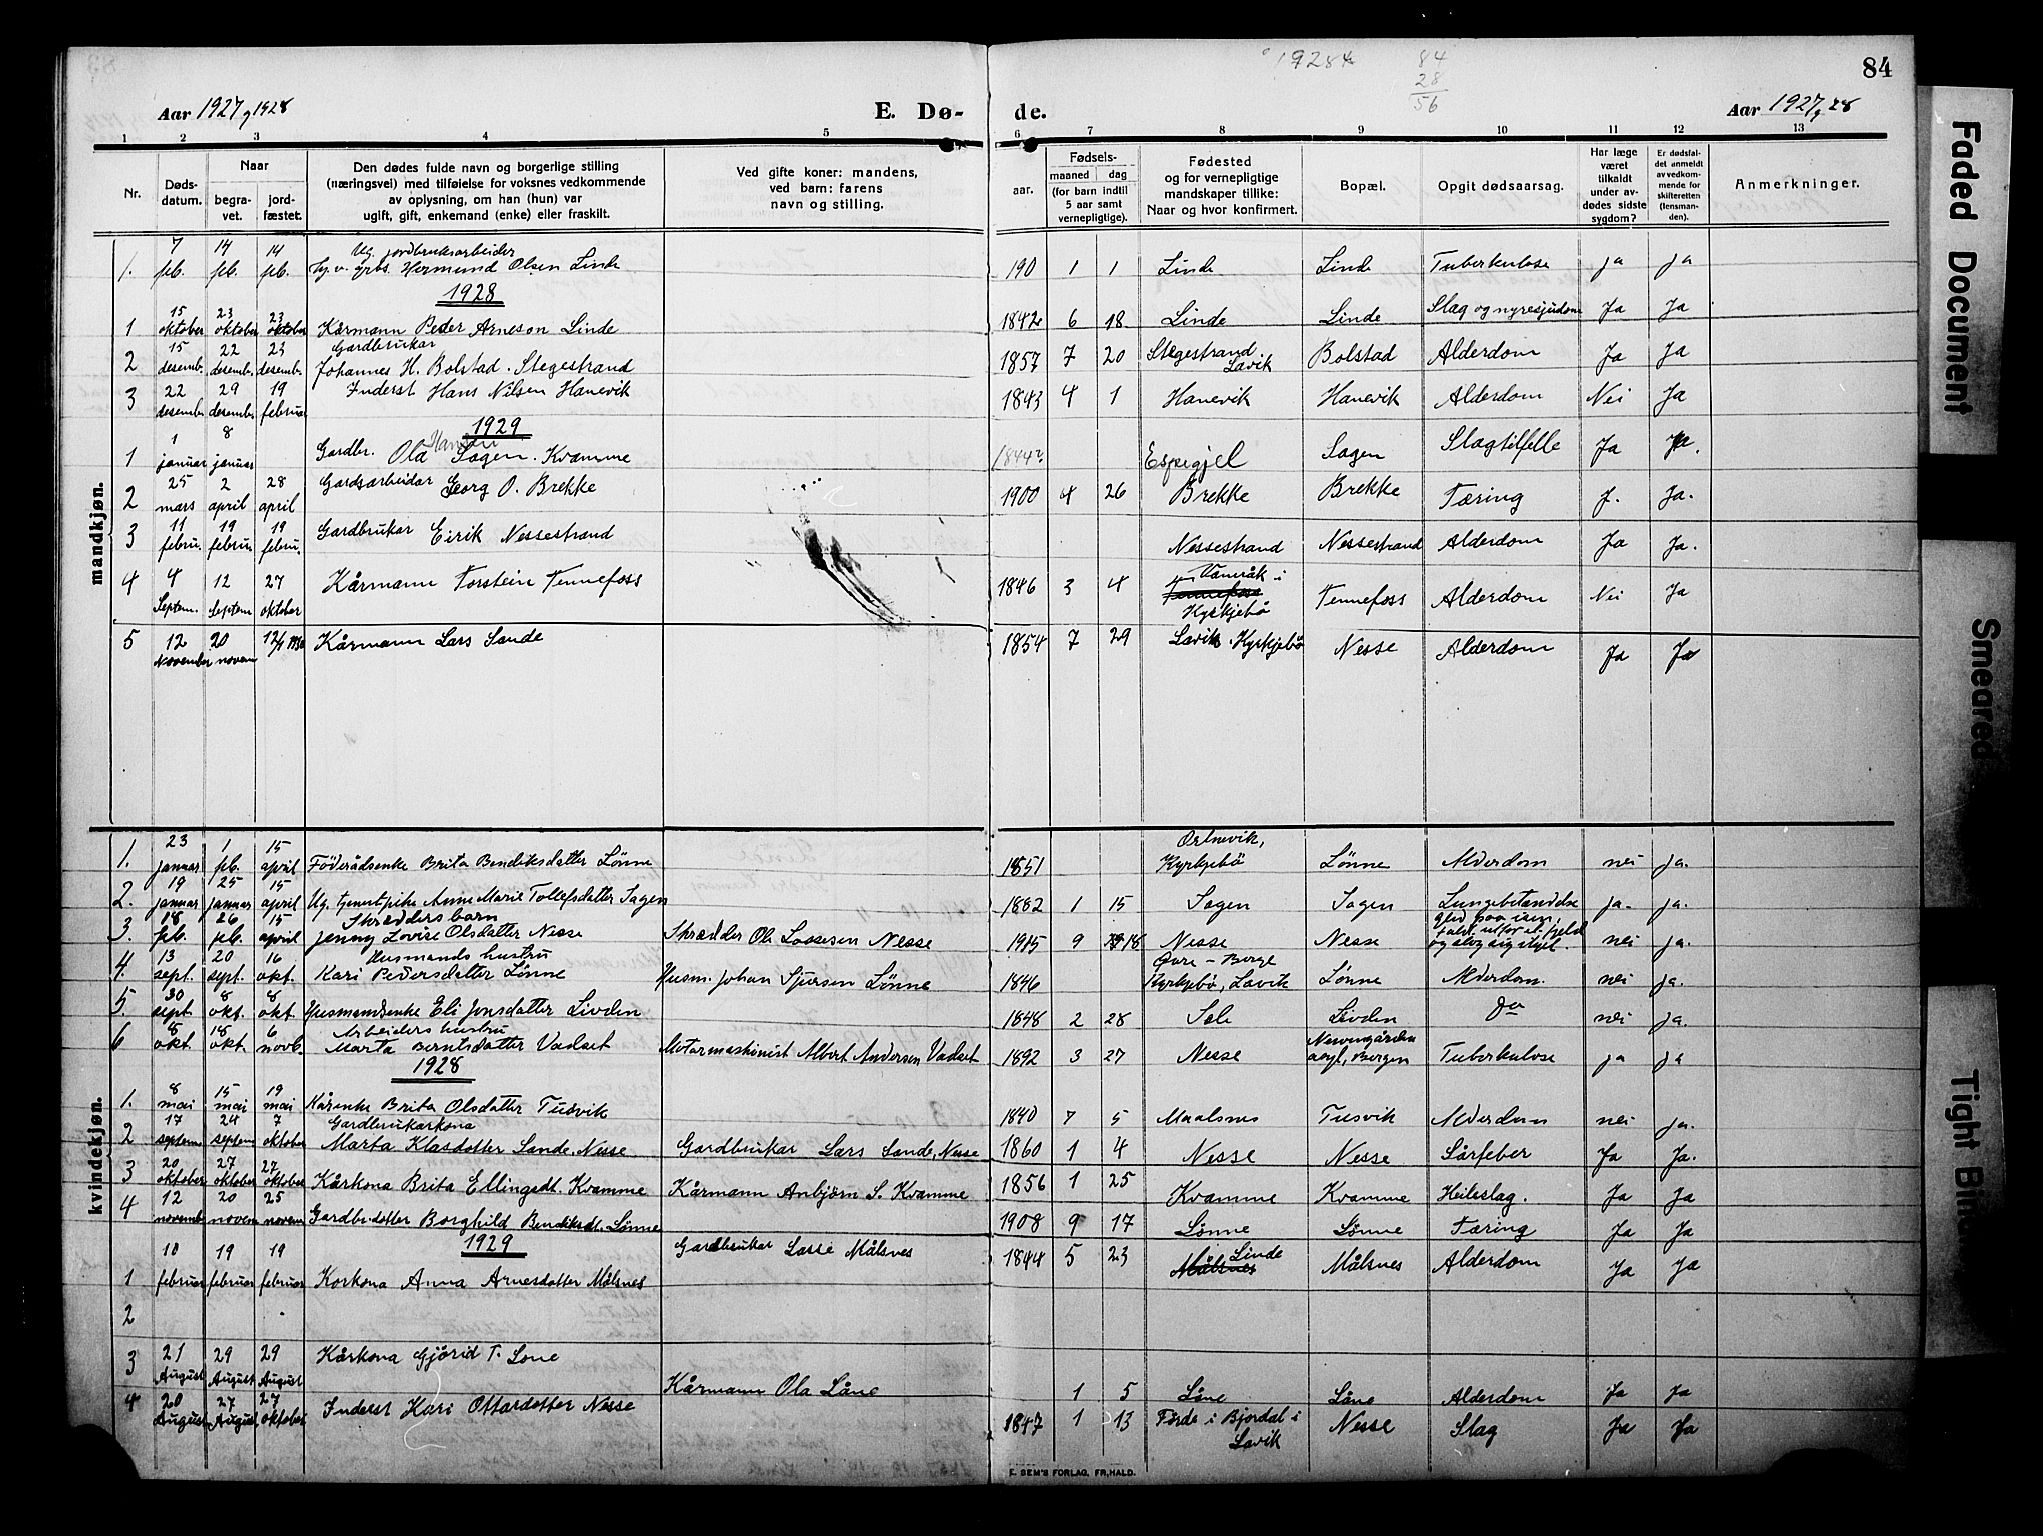 19284 84
28
56
84
Aar 1927 og 1928 E. Dø- de. Aar 1927 og 28
1 2 3 4 5 6 7 8 9 10 11 12 13
Nr. Døds-datum. Naar begra-vet. jord-fæstet. Den dødes fulde navn og borgerlige stilling (næringsvei) med tilføielse for voksnes vedkommende av oplysning, om han (hun) var ugift, gift, enkemand (enke) eller fraskilt. Ved gifte koner: mandens, ved barn: farens navn og stilling. Fødsels- aar. maaned dag (for barn indtil 5 aar samt vernepligtige). Fødested og for vernepligtige mandskaper tillike: Naar og hvor konfirmert. Bopæl. Opgit dødsaarsag. Har læge været tilkaldt under av-dødes sidste sygdom? Er dødsfal-det anmeldt av vedkom-mende for skifteretten (lensman-den). Anmerkninger.
mandkjøn.
1. 7 feb. 14 feb. 14 feb. Ug. jordbruksarbeider Hermund Olsen Linde 190 1 1 Linde Linde Tuberkulose ja ja
1928
1 15 oktober 23 oktober 23 oktober Kårmann Peder Arneson Linde 1842 6 18 Linde Linde Slag og nyresjudom Ja Ja
2 15 desemb. 22 desemb. 23 desemb. Gardbrukar Johannes H. Bolstad. Stegestrand 1857 7 20 Stegestrand Lavik Bolstad Alderdom Ja Ja
3 22 desember 29 desember 19 februar Inderst Hans Nilsen Hanevik 1843 4 1 Hanevik Hanevik Alderdom Nei Ja
1929
1 1 januar 8 januar Gardbr. Ola Hansen Sagen. Kvamme 1844? Espegjel Sagen Slagtilfelle Ja Ja.
2 25 mars 2 april 28 april Gardsarbeidar Georg O. Brekke 1900 4 26 Brekke Brekke Tæring J. Ja.
3 11 febru. 19 febru. 19 febru. Gardbrukar Eirik Nessestrand Nessestrand Nessestrand Alderdom Ja Ja.
4 4 Septem. 12 Septem 27 oktober Kårmann Torstein Tennefoss 1846 3 4 Tennefoss i Kyrkjebø Tennefoss Alderdom Nei Ja
5 12 November 20 novem 12/1 1930 Kårmann Lars Sande 1854 7 29 Lavik Kyrkjebø Nesse Alderdom Ja Ja
kvindekjøn.
1. 23 januar 1 feb. 15 april Føderådsenke Brita Bendiksdatter Lønne 1851 Ortnevik, Kyrkjebø Lønne Alderdom nei ja.
2. 19 januar 25 januar 15 april Ug. tjenestpike Anne Marie Tollefsdatter Sagen 1882 1 15 Sagen Sagen Lungebetændelse ja. ja.
3. 18 feb. 26 feb. 15 april Skrædders barn Jenny Lovise Olsdatter Nesse Skrædder Ole Lassesen Nesse 1915 9 18 Nesse Nesse gled paa isen, faldt utfor et fjeld og slog sig ihjel. nei ja.
4. 13 sept. 20 sept. 16 okt. Husmands hustru Kari Pedersdatter Lønne Husm. Johan Sjursen Lønne 1846 Øvre-Berge Kyrkjebø, Lavik Lønne Alderdom. nei ja.
5. 30 sept. 8 okt. 8 okt. Husmandsenke Eli Jonsdatter Livden 1848 2 28 Sele Livden Do nei ja.
6 8 okt. 18 okt. 6 novb. Arbeiders hustru Marta Berntsdatter Vadset Motormaskinist Albert Andersen Vadset 1892 3 27 Nesse Nevengården asyl, Bergen Tuberkulose ja ja
1928
1. 8 mai 15 mai 19 mai Kårenke Brita Olsdatter Tusvik 1840 7 5 Maalsnes Tusvik Alderdom nei ja.
2 17 septem 24 septem 7 oktober Gardbrukarkona Marta Klasdotter Sande, Nesse Gardbrukar Lars Sande, Nesse 1860 1 4 Nesse Nesse Sårfeber Ja Ja.
3 20 oktober 27 oktober 27 oktober Kårkona Brita Ellingsdt. Kvamme Kårmann Anbjørn S. Kvamme 1856 1 25 Kvamme Kvamme Heileslag. Ja Ja
4 12 novemb 20 novem 25 novem Gardbr.dotter Borghild Bendiksdt. Lønne 1908 9 17 Lønne Lønne Tæring Ja Ja
1929
1 10 februar 19 februar 19 februar Korkona Anna Arnesdotter Målsnes Gardbrukar Lasse Målsnes 1844 5 23 Målsnes Linde Målsnes Alderdom Ja Ja
2
3 21 August 29 August 29 August Kårkona Gjørid T. Lone Kårmann Ola Låne 1 5 Låne Låne Alderdom Ja Ja
4 20 August 27 August 27 oktober Inderst Kari Ottardotter Nesse 1847 1 13 Førde i Bjordal i Lavik Nesse Slag Ja Ja
E. SEM'S FORLAG, FR.HALD.
Faded Document
Smeared
Tight Bin